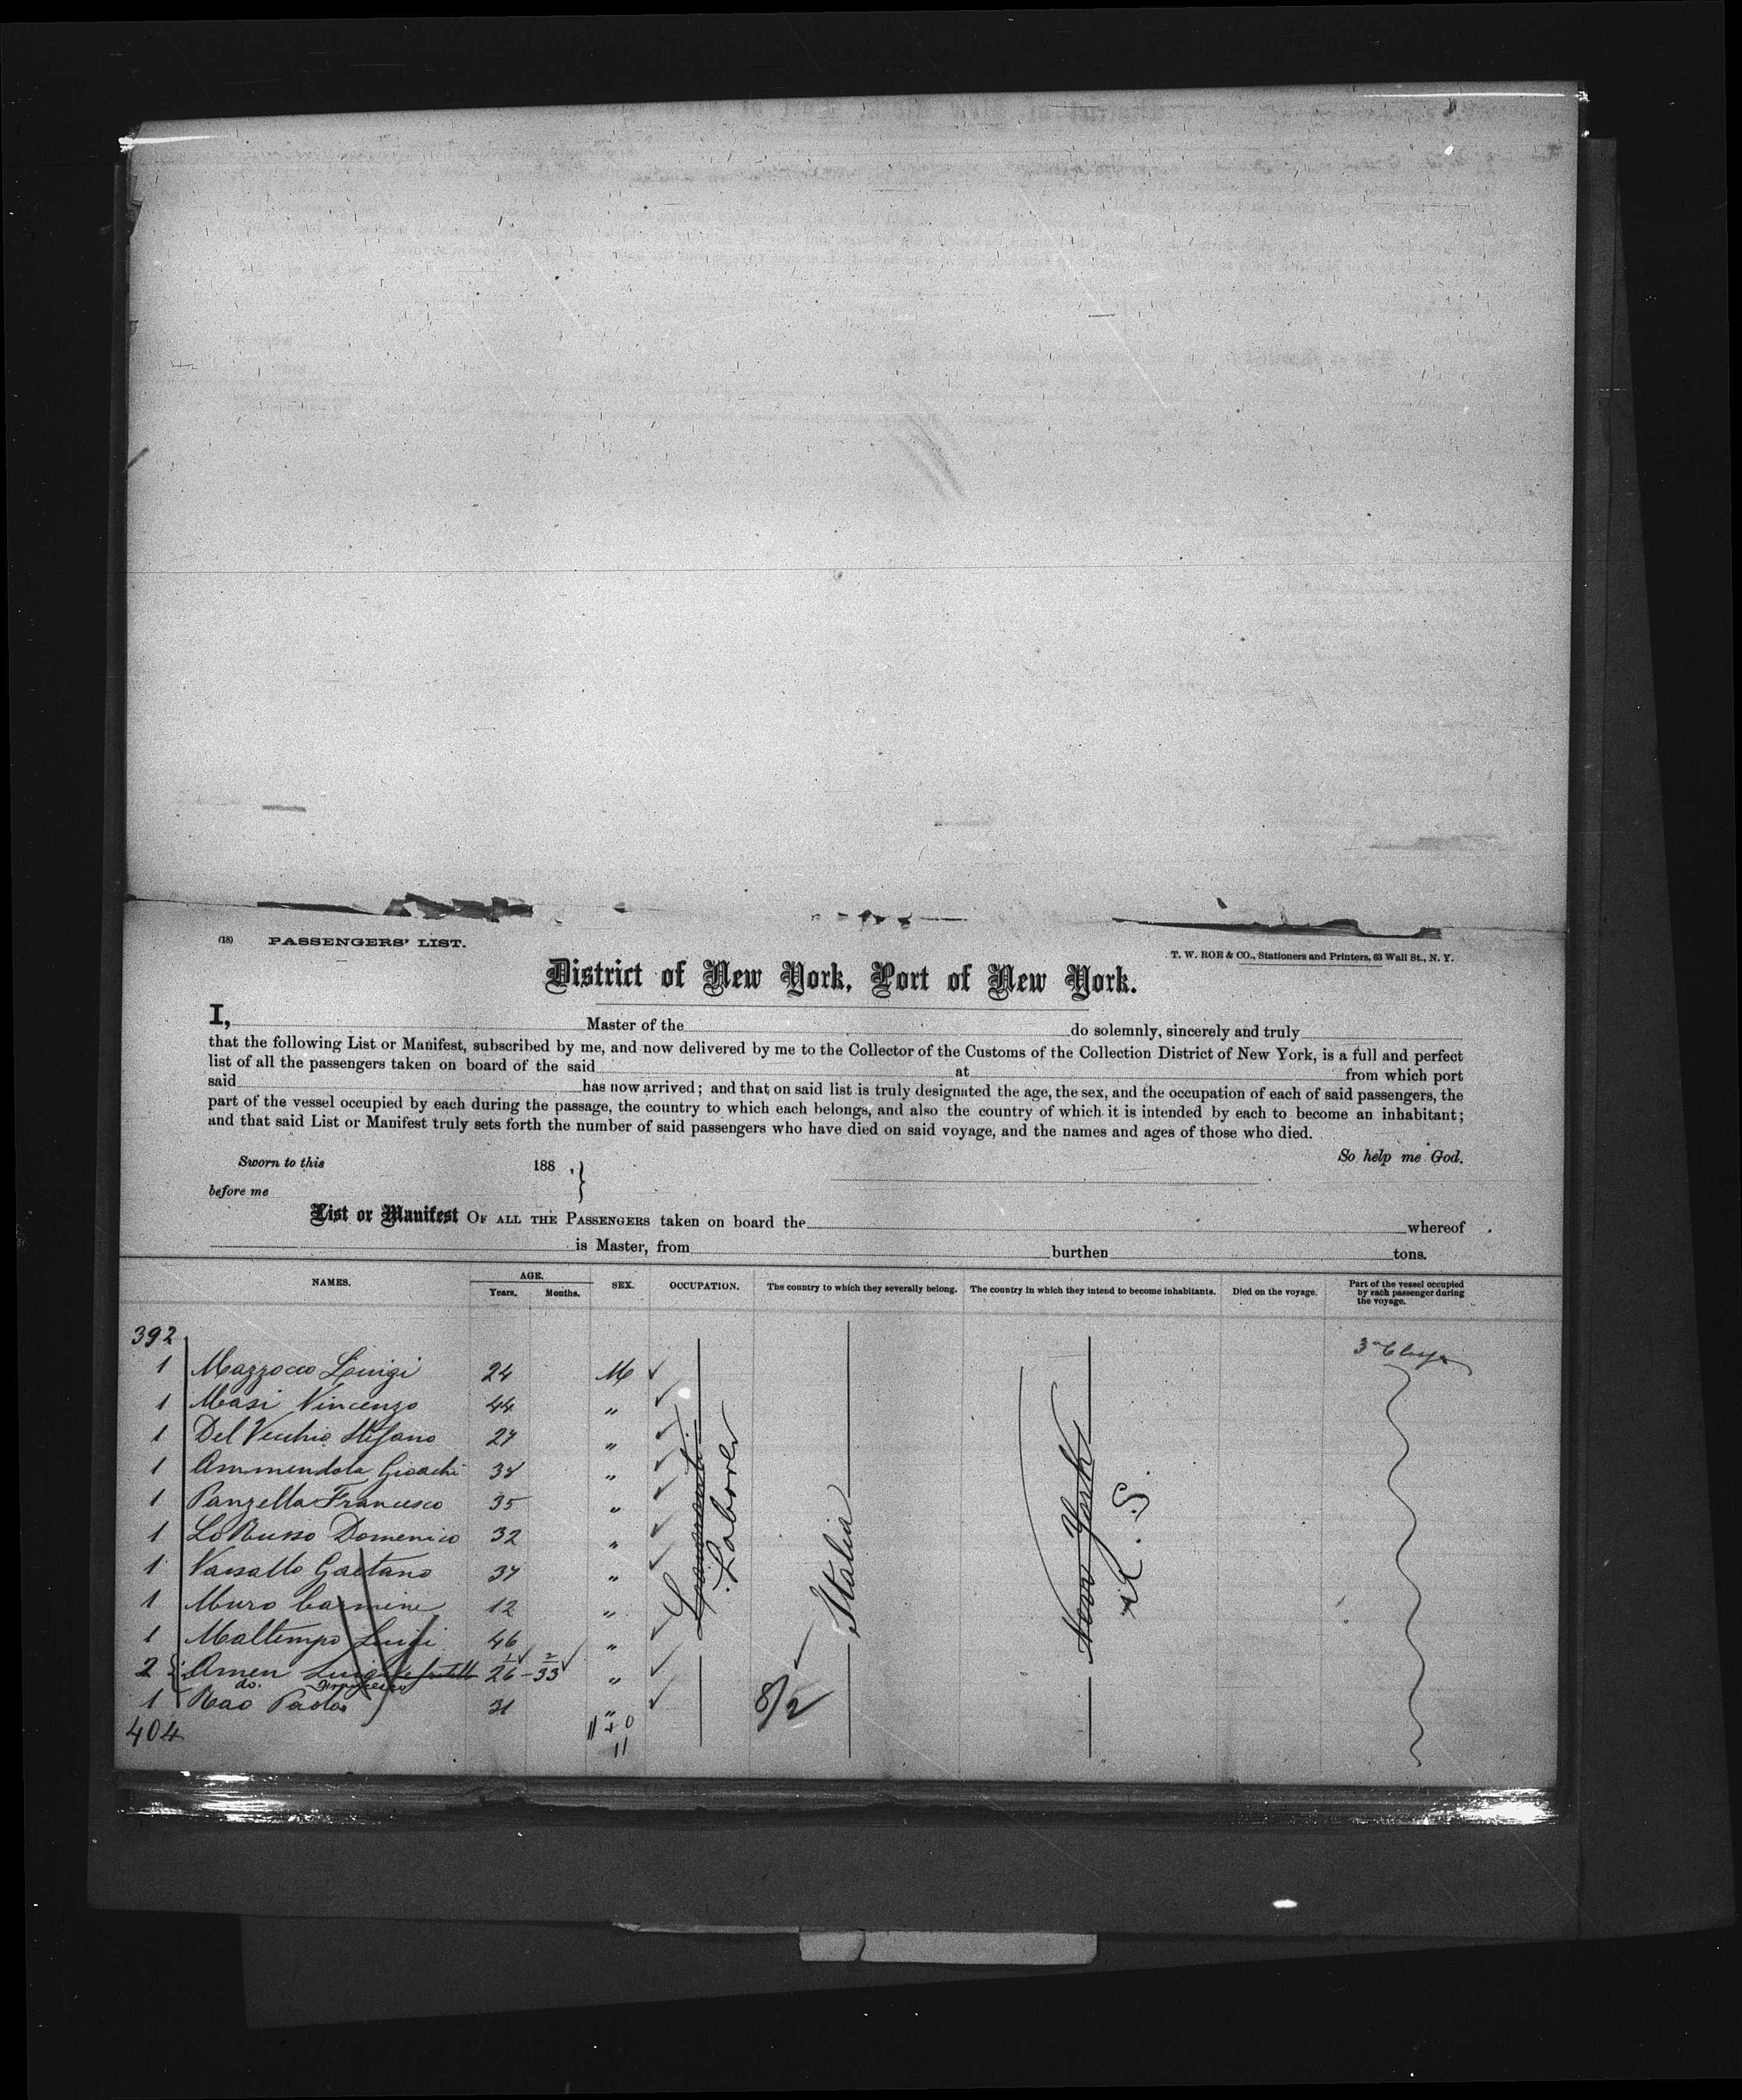 (18) PASSENGERS' LIST.
T. W. ROE & CO., Stationers and Printers, 63 Wall St., N. Y.
District of New York, Port of New York.
I, Master of the do solemnly, sincerely and truly
that the following List or Manifest, subscribed by me, and now delivered by me to the Collector of the Customs of the Collection District of New York, is a full and perfect
list of all the passengers taken on board of the said at from which port
said has now arrived; and that on said list is truly designated the age, the sex, and the occupation of each of said passengers, the
part of the vessel occupied by each during the passage, the country to which each belongs, and also the country of which it is intended by each to become an inhabitant;
and that said List or Manifest truly sets forth the number of said passengers who have died on said voyage, and the names and ages of those who died.
So help me God.
Sworn to this 188 , }
before me
List or Manifest OF ALL THE PASSENGERS taken on board the whereof
is Master, from burthen tons.
NAMES. AGE. Years. Months. SEX. OCCUPATION. The country to which they severally belong. The country in which they intend to become inhabitants. Died on the voyage. Part of the vessel occupied by each passenger during the voyage.
392
1 Mazzocco Luigi 24 M
1 Masi Vincenzo 44 "
1 Del Vecchio Stefano 27 "
1 Ammendola Gioachi "
1 Panzella Francesco 35 "
1 Lo Russo Domenico 32 "
1 Vassallo Gaetano "
1 Muro Carmine 12 "
1 Maltempo Luigi 46 "
2 Amen Luigi 26 - 33 "
do.
1 Rao Paolo 31 "
404
11 + 0
11
Laborer
Italia
8/2
New York
U. S.